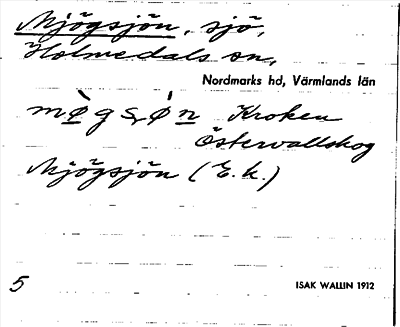 Mjögsjön, sjö,
Holmedals sn,
Nordmarks hd, Värmlands län
mø̀gsǿn Kroken
Östervallskog
Mjögsjön (E.k.)
5
ISAK WALLIN 1912